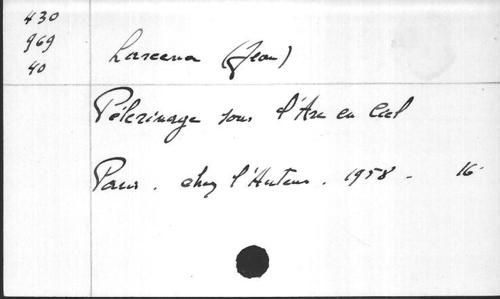 430
969
40
Larcena (Jean)
Pélerinage sous l'Arc en Ciel
Paris. chez l'Auteur. 1958 - 16